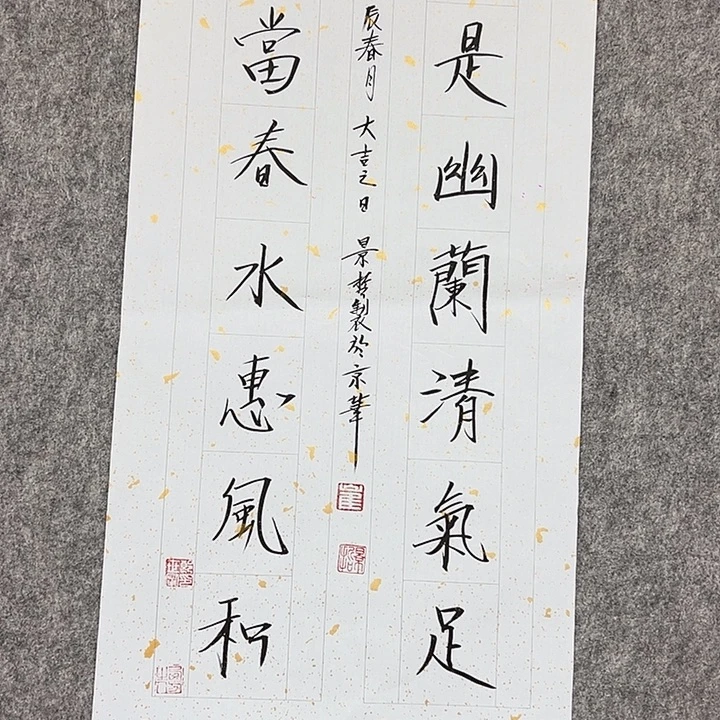 是幽蘭清氣足
辰春月 大吉之日 景哲製於京華
當春水惠風和